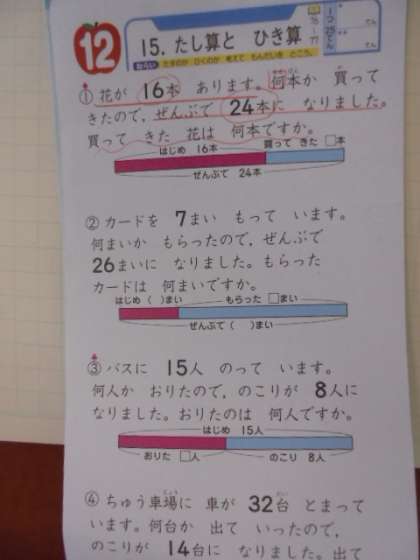 12
15. たし算と ひき算
ねらい たすのか ひくのか 考えて もんだいを とこう。
76
77
1つ 25てん
てん
① 花が 16本 あります。何本か 買って
きたので，ぜんぶで 24本に なりました。
買って きた 花は 何本ですか。
はじめ 16本 買って きた □本
ぜんぶで 24本
② カードを 7まい もって います。
何まいか もらったので，ぜんぶで
26まいに なりました。もらった
カードは 何まいですか。
はじめ ( )まい もらった □まい
ぜんぶで ( )まい
③ バスに 15人 のって います。
何人か おりたので，のこりが 8人に
なりました。おりたのは 何人ですか。
はじめ 15人
おりた □人 のこり 8人
④ ちゅう車場に 車が 32台 とまって
います。何台か 出て いったので，
のこりが 14台に なりました。出て